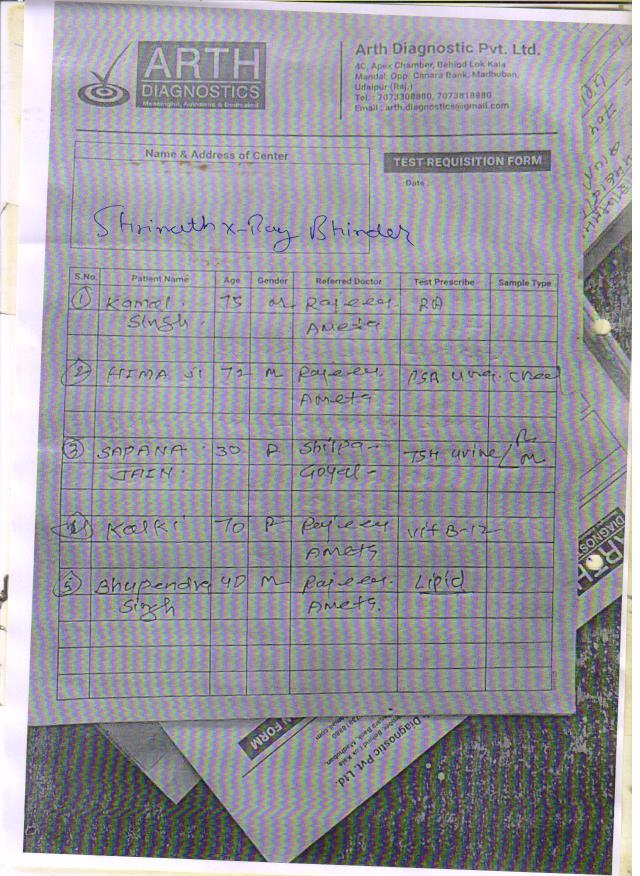 ARTH
DIAGNOSTICS
Meaningful, Authentic & Dedicated
Arth Diagnostic Pvt. Ltd.
4C, Apex Chamber, Behind Lok Kala
Mandal, Opp. Canara Bank, Madhuban,
Udaipur (Raj.)
Tel.: 7073308880, 7073818880
Email : arth.diagnostics@gmail.com
Name & Address of Center
TEST REQUISITION FORM
Date
Shrinath X-Ray Bhinder
S.No. Patient Name Age Gender Referred Doctor Test Prescribe Sample Type
1 Kamal 75 M Rajeev RA
Singh Ameta
2 HIMA JI 72 M Rajeev PSA
Ameta
3 SAPANA 30 F Shilpa TSH urine/R
JAIN Goyal M
4 Kalki 70 F Rajeev Vit B-12
Ameta
5 Bhupendra 40 M Rajeev Lipid
Singh Ameta
ARTH
DIAGNOSTICS
N FORM
Diagnostic Pvt. Ltd.